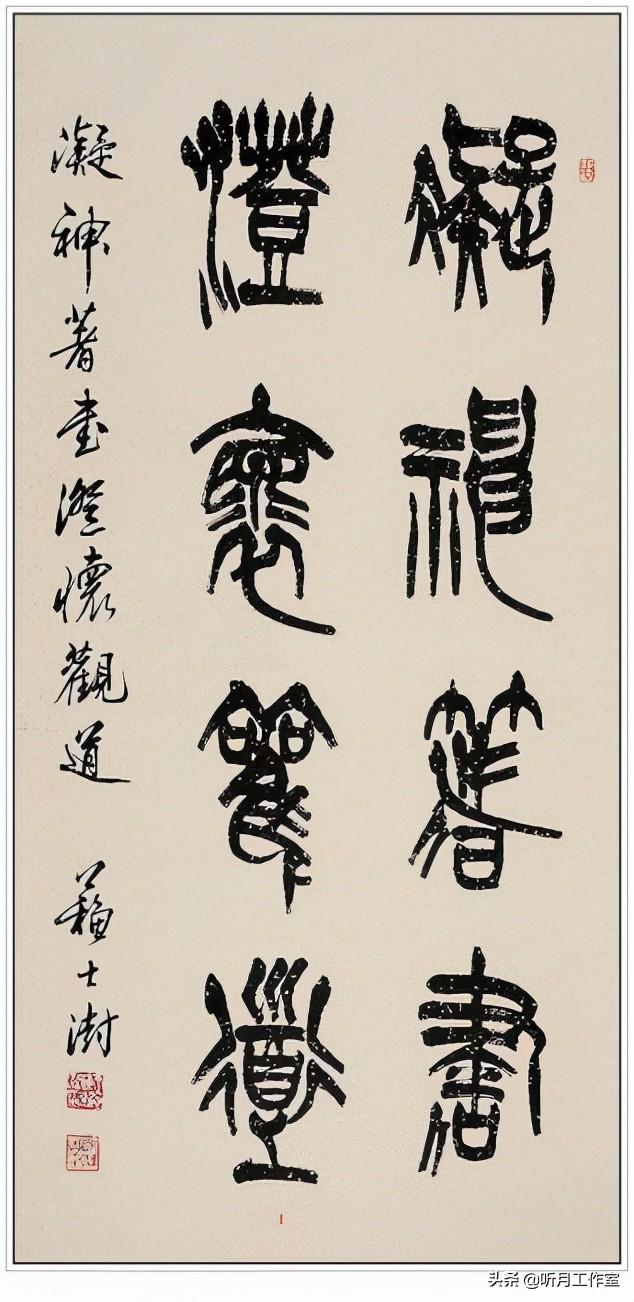 凝神著書
澄懷觀道
凝神著书澄懷觀道 蘇士澍
头条 @听月工作室